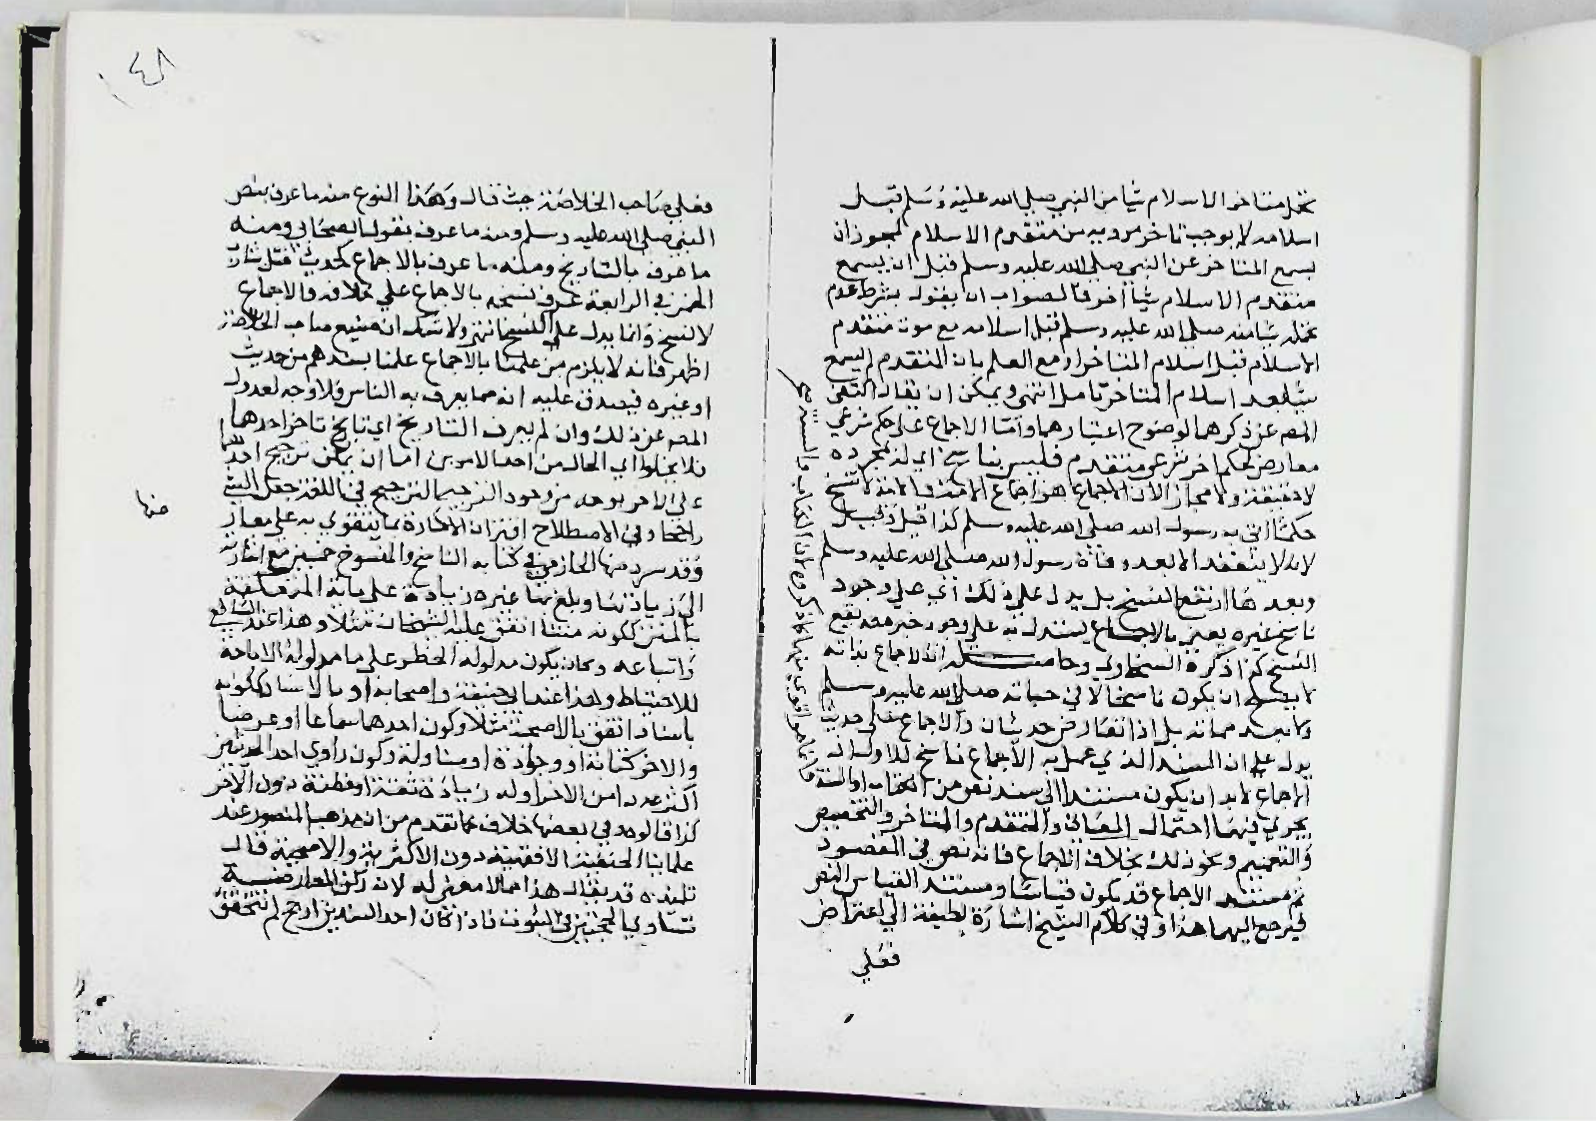 تحمل متاخر الاسلام شيا من النبي صلي الله عليه وسلم قبل
اسلامه لا يوجب تاخر مرويه من متقدم الاسلام لجواز ان
يسمع المتاخر عن النبي صلي الله عليه وسلم قبل ان يسمع
متقدم الاسلام شيا اخر فالصواب ان يقول بشرط عدم
تحمله شيا منه صلي الله عليه وسلم قبل اسلامه مع موت متقدم
الاسلام قبل اسلام المتاخر او مع العلم بان المتقدم لم يسمع
شيا بعد اسلام المتاخر تامل انتهي ويمكن ان يقال اكتفي
المص عن ذكرهما لوضوح اعتبارهما واما الاجماع علي حكم شرعي
معارض لحكم اخر شرعي متقدم فليس بناسخ اي لذلك بمجرده
لا حقيقة ولا مجازا لان الاجماع هو اجماع الامة والامة لا تنسخ
حكما اتي به رسول الله صلي الله عليه وسلم كذا قيل وقيل
لانه لا ينعقد الا بعد وفاة رسول الله صلي الله عليه وسلم
وبعدها ارتفع النسخ بل يدل علي ذلك اي علي وجود
ناسخ غيره يعني بالاجماع يستدل به علي وجود خبر معه يقع
النسخ كذا ذكره السخاوي وحاصله ان الاجماع بذاته
لا يصلح ان يكون ناسخا لا في حياته صلي الله عليه وسلم
ولا بعد مماته بل اذا تعارض حديثان والاجماع علي حديث
يدل علي ان المسند الذي عمل به الاجماع ناسخ للاول لان
الاجماع لا بد ان يكون مستندا الي سند نص من الكتاب او السنة
يجري فيهما احتمال المعاني والمتقدم والمتاخر والتخصيص
والتعميم ونحو ذلك بخلاف الاجماع فانه نص في المقصود
ثم مستند الاجماع قد يكون قياسا ومستند القياس النص
فيرجع اليهما هذا وفي كلام الشيخ اشارة لطيفة الي اعتراض
فعلي
فعلي صاحب الخلاصة حيث قال وهذا النوع منه ما عرف بنص
النبي صلي الله عليه وسلم ومنه ما عرف بقول الصحابي ومنه
ما عرف بالتاريخ ومنه ما عرف بالاجماع كحديث قتل شارب
الخمر في الرابعة عرف نسخه بالاجماع علي خلافه والاجماع
لا ينسخ وانما يدل علي النسخ انتهي ولا شك ان صنيع صاحب الخلاصة
اظهر فانه لا يلزم من علمنا بالاجماع علمنا بسندهم من حديث
او غيره فيصدق عليه انه مما يعرف به الناس فلا وجه لعدول
المص عن ذلك وان لم يعرف التاريخ اي تاريخ تاخر احدهما
فلا يخلوا اي الحال من احد الامرين اما ان يمكن ترجيح احدهما
علي الاخر بوجه من وجوه الترجيح الترجيح في اللغة جعل الشي
راجحا وفي الاصطلاح اقتران الامارة بما يتقوي به علي معارضها
وقد سرد منها الحازمي في كتابه الناسخ والمنسوخ خمسين مع اشارته
الي زيادتها وبلغ بها غيره زيادة علي ماية المتعلقة
بالمتن ككونه متنا اتفق عليه الشيخان مثلا وهذا عند الشافعي
واتباعه وكان يكون مدلوله الحظر علي ما مدلوله الاباحة
للاحتياط وهذا عند ابي حنيفة واصحابه او بالاسناد ككونه
باسناد اتفق بالاصحية مثلا وكون احدهما سماعا او عرضا
والاخر كتابة او وجادة او مناولة وكون راوي احد الحديثين
اكثر عددا من الاخر او له زيادة ثقة او فطنة دون الاخر
كذا قالوه وفي بعضها خلاف مما تقدم من ان مذهب المنصور عند
علماينا الحنفية الافقهية دون الاكثرية والاصحية قال
تلميذه قد يقال هذا مما لا معني له لان ركن المعارضة
تساوي الحجتين في الثبوت فاذا كان احد السندين ارجح لم تتحقق
منها